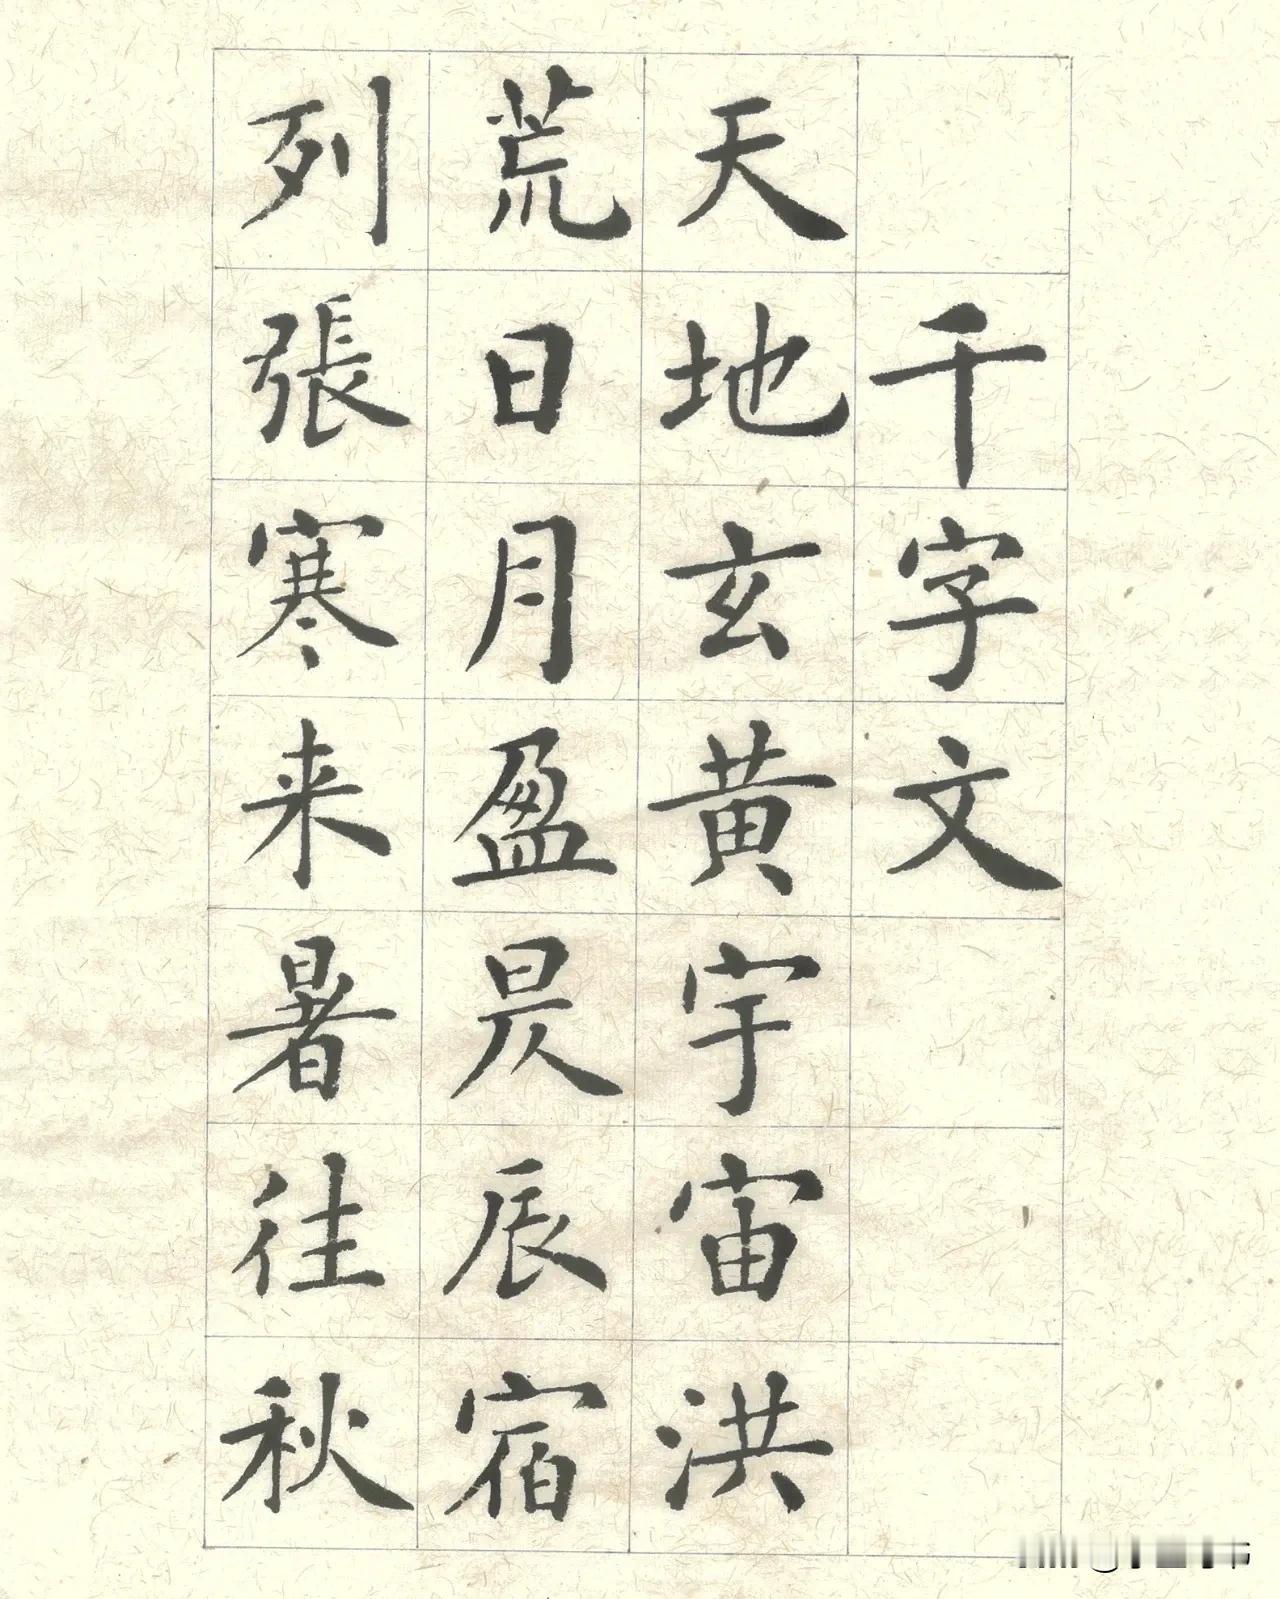 千字文
天地玄黃宇宙洪
荒日月盈昃辰宿
列張寒来暑往秋